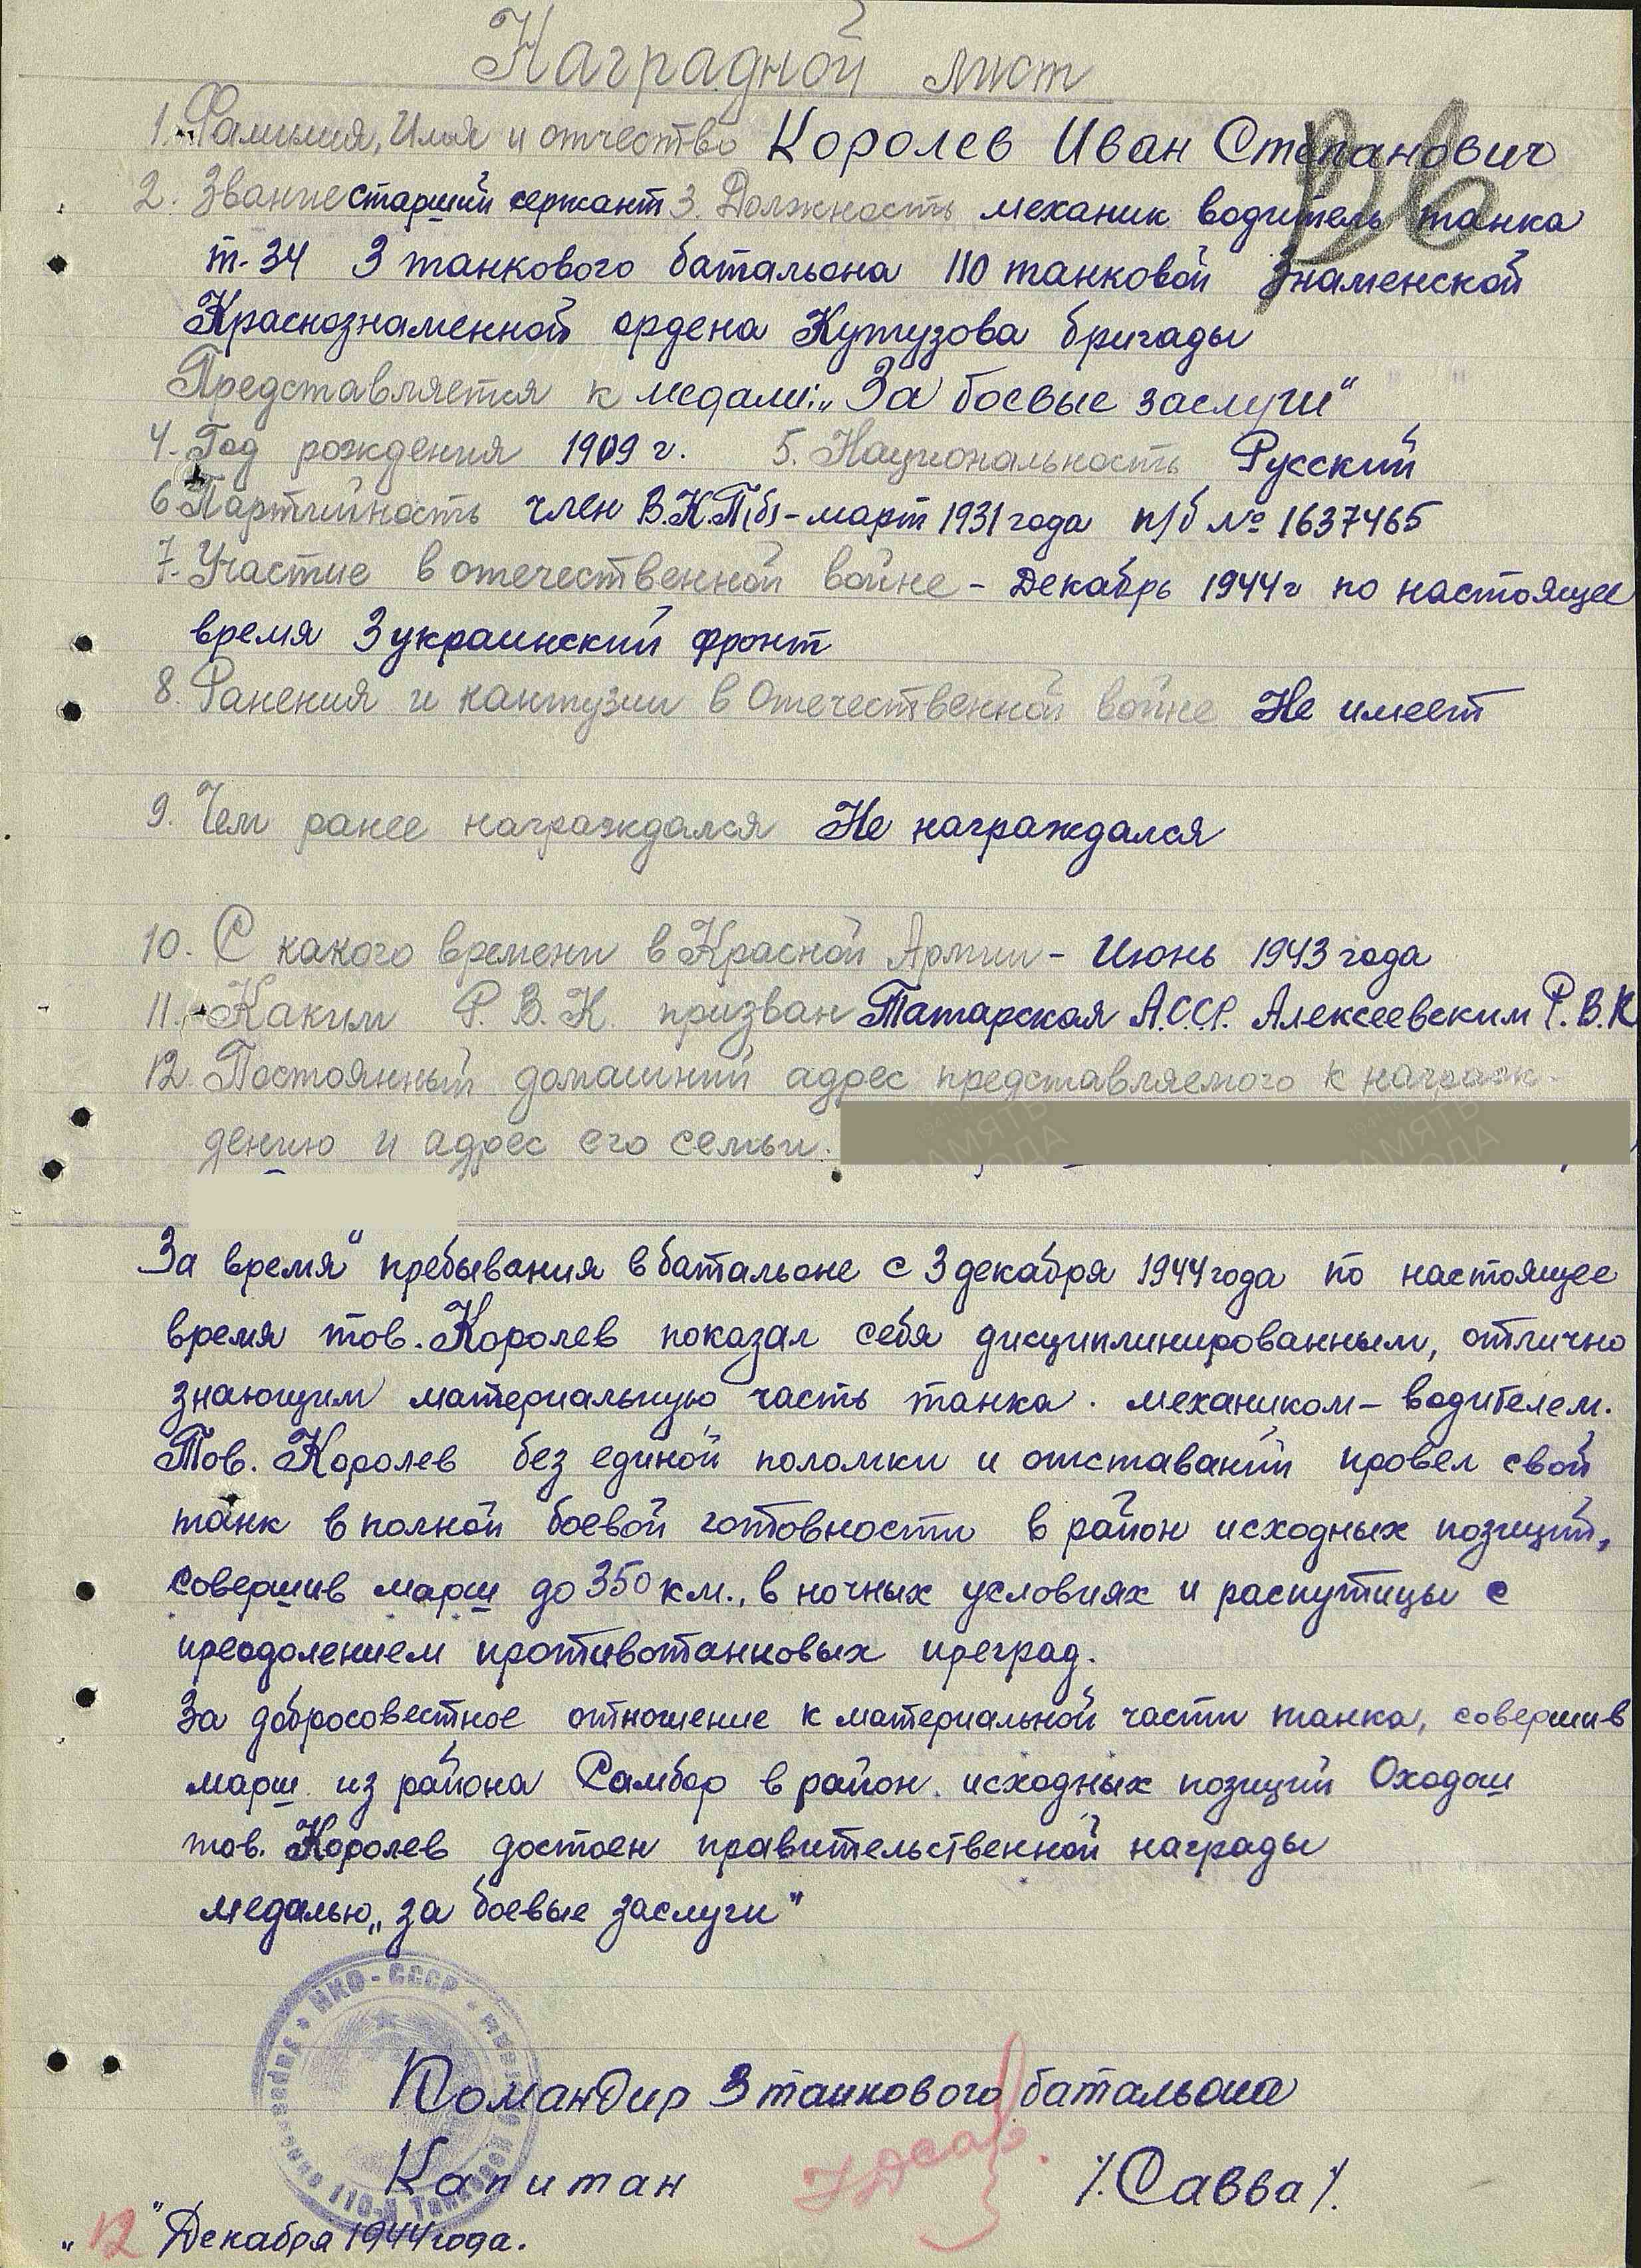 Наградной лист
1. Фамилия, Имя и отчество Королев Иван Степанович
2. Звание старший сержант 3. Должность механик водитель танка
т-34 3 танкового батальона 110 танковой Знаменской
Краснознаменной ордена Кутузова бригады
Представляется к медали: „За боевые заслуги"
4. Год рождения 1909 г. 5. Национальность Русский
6 Партийность член В.К.П(б) - март 1931 года п/б № 1637465
7. Участие в отечественной войне - Декабрь 1944 г по настоящее
время 3 украинский фронт
8. Ранения и кантузии в Отечественной войне Не имеет
9. Чем ранее награждался Не награждался
10. С какого времени в Красной Армии - Июнь 1943 года
11. Каким Р.В.К. призван Татарская А.С.С.Р. Алексеевским Р.В.К
12. Постоянный домашний адрес представляемого к награж-
дению и адрес его семьи.
За время пребывания в батальоне с 3 декабря 1944 года по настоящее
время тов. Королев показал себя дисциплинированным, отлично
знающим материальную часть танка. механиком-водителем.
Тов. Королев без единой поломки и отставаний провел свой
танк в полной боевой готовности в район исходных позиций,
совершив марш до 350 км., в ночных условиях и распутицы с
преодолением противотанковых преград.
За добросовестное отношение к материальной части танка, совершив
марш из района Самбор в район исходных позиций Оходаш
тов. Королев достоен правительственной награды
медалью „за боевые заслуги"
НКО-СССР
110-я Танковая
Командир 3 танкового батальона
Капитан /Савва/.
„12" Декабря 1944 года.